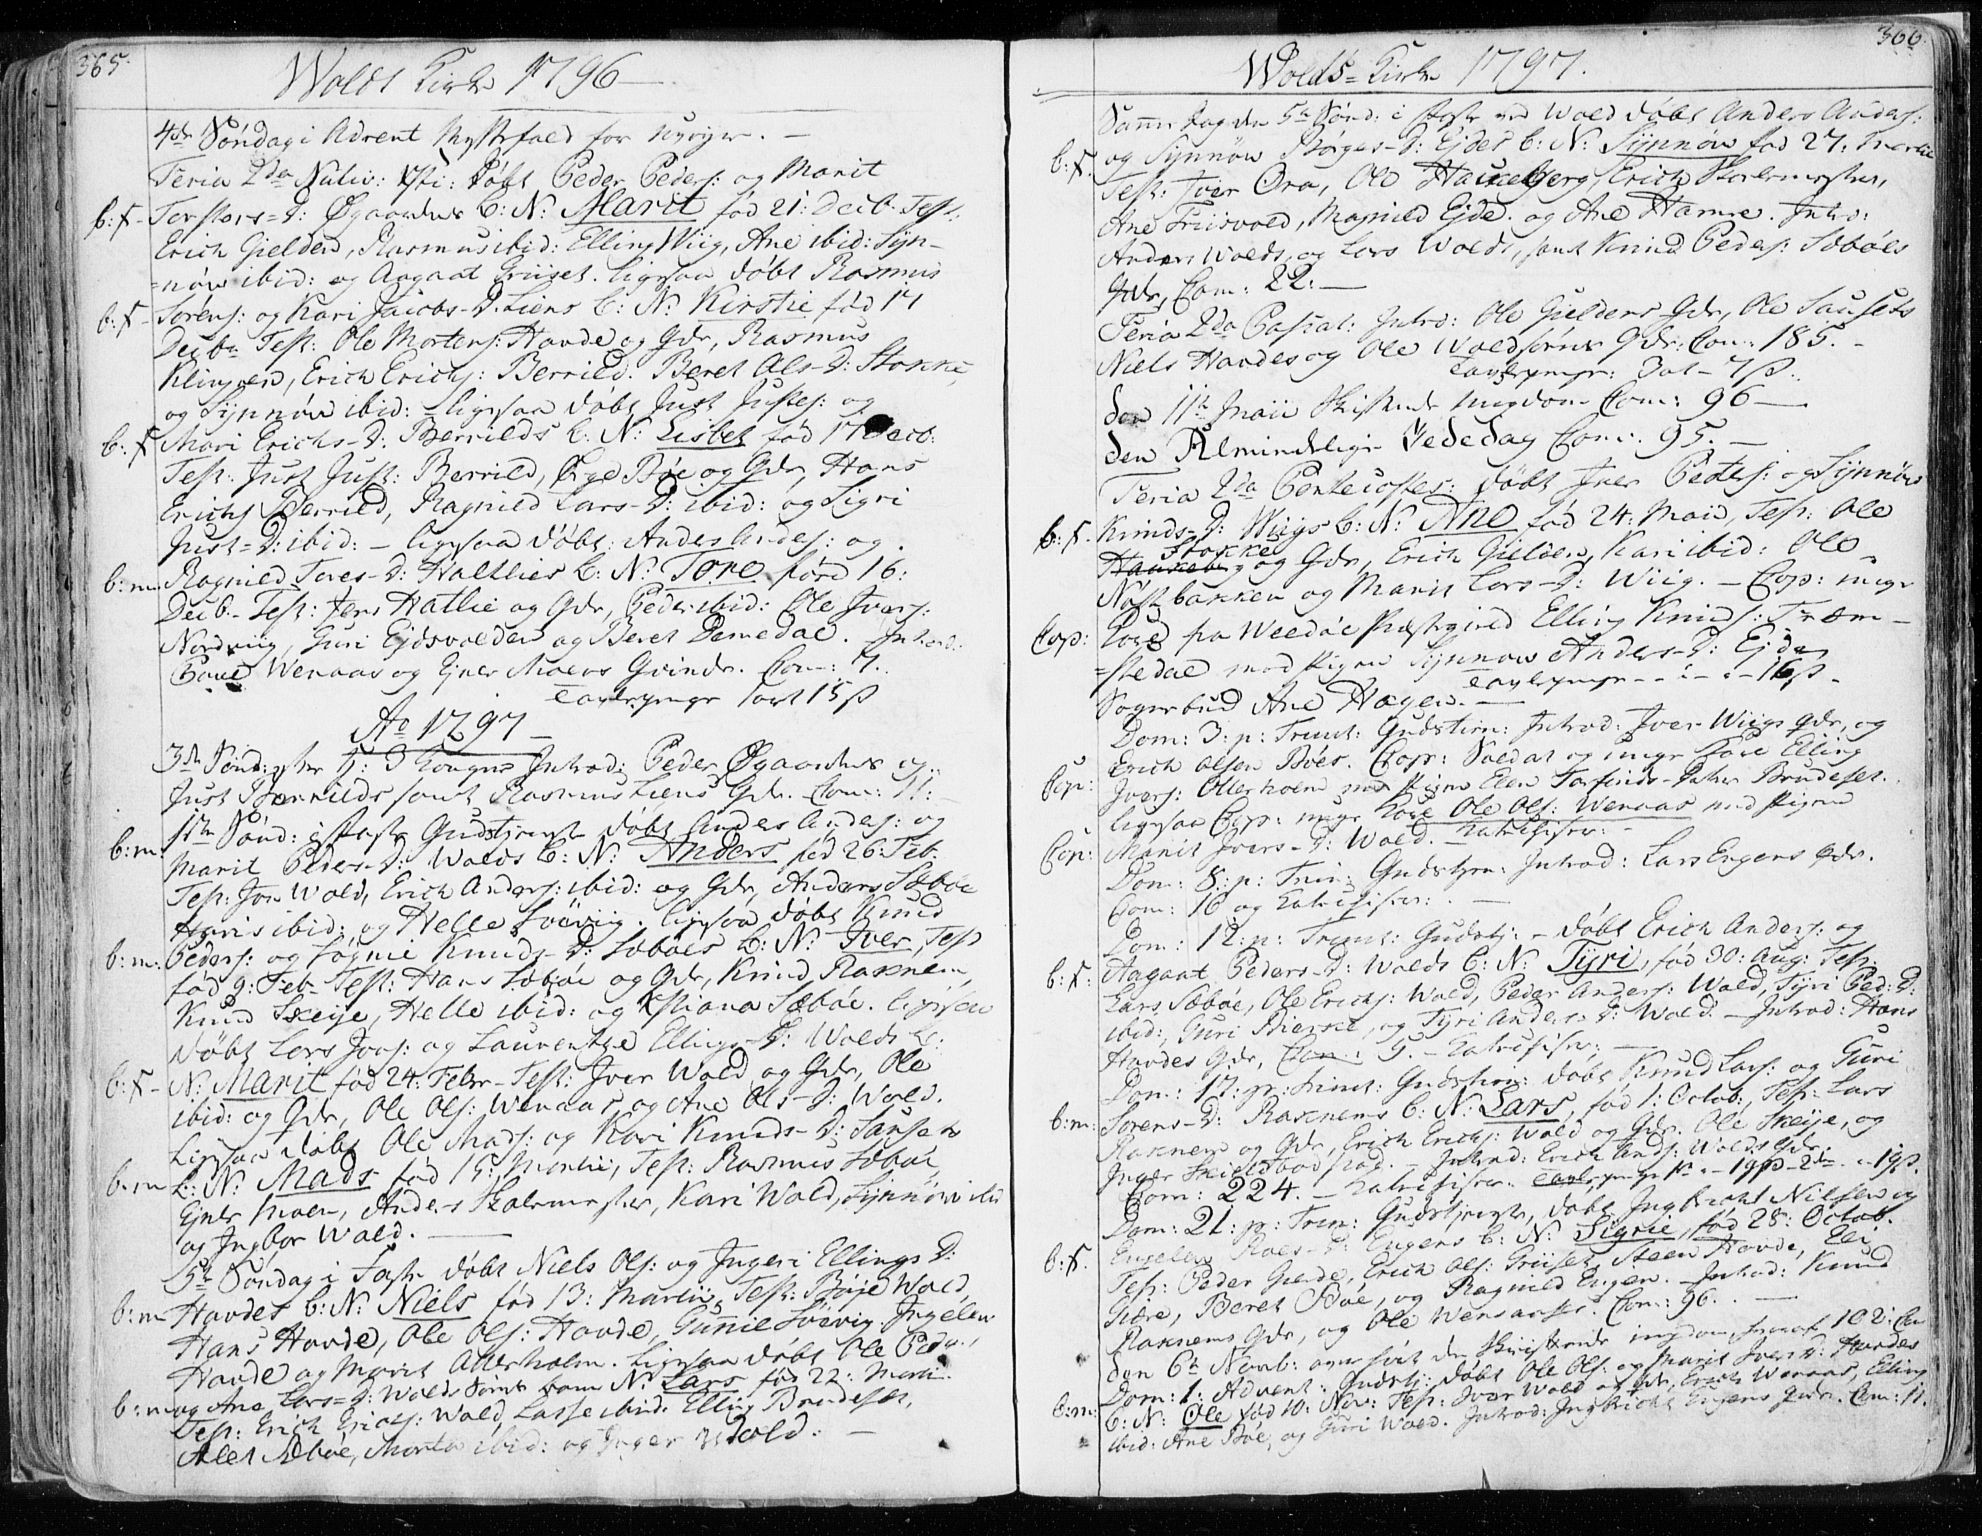 365.
Wolds Kirke 1796
4de Søndag i Advent Mystfald for uveyer.
Feria 2da Nativ: Xsti: døbt Peder Peders: og Marit
b: f- Torstens-D: Øgaardens b: N: Marit fød 21: Decb. Test:
Erich Gielden, Rasmus ibid: Elling Wiig, Ane ibid: Syn-
=nøw ibid: og Aagaat Griiset. ligesaa døbt Rasmus
b: f- Sørens: og Kari Jacobs-D: Liens b: N: Kirstie fød 17
Decbr Test: Ole Mortens: Hovde og Gdr, Rasmus
Klingen, Erich Erichs: Berrild. Beret Ols-D: Stokke,
og Synnøw ibid: - ligesaa døbt Just Justs: og
b: f Mari Erichs-D: Berrilds b: N: Lisbet fød 17 Decb:
Test: Just Just: Berrild, Bøe og Gdr, Hans
Erichs Berrild, Ragnild Lars-D: ibid: og Sigri
Just=D: ibid: - ligesaa døbt Anders Anders: og
b: m. Ragnild Tores-D: Hatlies b: N: Tore fød 16:
Decb- Test: Jens Hatlie og Gdr, Peder ibid: Ole Ivers:
Nordviig, Guri Ejdsvolden og Beret Demedal. Introd:
Poul Wenaas og Ejner Moens Qvinde. Com: 7.
Tavlepenge 15 ß
Ao 1797
3de Sønd: efter H: 3 Konger Introd: Peder Øgaardens og
Just Berrilds samt Rasmus Liens Gdr. Com: 11:
1ste Sønd: i Faste Gudstjeneste døbt Anders Anders: og
b: m. Marit Peders-D: Wolds b: N: Anders fød 26: Feb:
Test: Jon Wold, Erich Anders: ibid: og Gdr, Anders Sæbøe
ibid: og Helle Løvig. ligesaa døbt Knud
b: m: Peders: og Knuds-D: Sæbøes b: N: Iver, Test
fød 9: Feb- Test: Hans Sæbøe og Gdr, Knud Raknem,
Knud Skeije, Helle ibid: og Sæbøe. Ligesaa
døbt Lars Jons: og Laurentze Ellings-D: Wolds b:
b: f- N: Marit fød 24: Febr- Test: Iver Wold og Gdr, Ole
ibid: og Gdr, Ole Ols: Wenaas og Ane Ols-D: Wold.
Ligesaa døbt Ole Mads: og Kari Knuds-D: Sauset
b: m b: N: Mads fød 15: Martii, Test: Rasmus Sæbøe,
Ejner Moen, Anders Skolemester, Kari Wold, Synnøw ibid
og Ingbor Wold.
5te Søndag i Faste døbt Niels Ols: og Ingeri Ellings D:
b: m Hovdes b: N: Niels fød 13: Martii, Test: Børje Wold,
Hans Hovde, Ole Ols: Hovde, Gunnie Løvig Ingelen
Hovde og Marit Otterholm. Ligesaa døbt Ole Peder:,
b: m og Ane Lars=D: Wolds N: Lars fød 22: Marti:
Test: Erich Erichs: Wold, Lasse ibid: Elling Brudeset,
Alet Sæbøe, Marta ibid: og Inger Wold.
366.
Wolds= Kirke 1797.
Samme dag den 5te Sønd: i Faste ved Wold døbt Anders Anders:
b: f. og Synnøw Børges-D: Ejdes b: N: Synnøw fød 27: Martii
Test: Iver Øra, Ole Haukeberg, Erich Skolemester,
Ane Friisvold, Magnild Ejde. og Ane Hamre. Intro:
Anders Wolds, og Lars Wolds, samt Knud Peders: Sæbøes
Gdr, Com: 22: -
Feria 2da Pascat: Introd: Ole Gieldens Gdr, Ole Sausets
Niels Hovdes og Ole Woldsørns Gdr: Com: 185. -
Tavlepenge: 3 ort - 7ß.
den 11te Maii Skiftende Ungdom Com: 96 -
den Almindelige Bededag Com: 95. -
Feria 2da Pentecostes: døbt Iver Peders: og Synnøw
b: f. Knuds-D: Wiigs b: N: Ane fød 24: Maii, Test: Ole
Stokke
Haukeberg og Gdr, Erich Gielden, Kari ibid: Ole
Nøstbakken og Marit Lars-D: Wiig. - Cop: unge
Cop: Karl fra Weedøe Præstegield Elling Knuds: Træm-
=stedal med Pigen Synnøw Anders-D: Ejde
Tavlepenge - - - - 16 ß.
Sognebud Ane Hagen. -
Dom: 3: p: Trinit: Gudstien: Introd: Iver Wiigs Gdr, og
Erich Olsen Bøes. Cop: Soldat og unge Karl Elling
Cop: Ivers: Otterholm med Pigen Elen Torfinds-Datter Brudeset.
ligesaa Cop: unge Karl Ole Ols: Wenaas med Pigen
Cop: Marit Ivers-D: Wold. - Katechiser: -
Dom: 8: p: Trin: Gudstjen: Introd: Lars Engens Gdr.
Com: 16 og Katechiser: . -
Dom: 12: p: Trinit: Gudstj: - døbt Erich Anders: og
b: f: Aagaat Peders-D: Wolds b: N: Tyri, fød 30: Aug: Test:
Lars Sæbøe, Ole Erichs: Wold, Peder Anders: Wold, Tyri Ped: D:
ibid:, Guri, og Tyri Anders: D: Wold. - Introd: Hans
Hovdes Gdr, Com: 9. - Katechiser: -
Dom: 17: p: Trinit: Gudstien: døbt Knud Lars: og Guri
b: m: Sørens-D: Raknems b: N: Lars, fød 1: Octob:, Test: Lars
Raknem og Gdr, Erich Erichs: Wold og Gdr. Ole Skeije, og
Inger. - Introd: Erich Ands: Wolds Gdr
Com: 224. - Katechiser. Tavlepenge 1ste - 19ß - 2den - 19ß.
Dom: 21: p: Trin: Gudstjeneste, døbt Ingbricht Nielsen og
b: f. Engelen Roes-D: Engens b: N: Sigrie, fød 28: Octob.
Test: Peder Gierde, Erich Ols: Griiset, Steen Hovde, Eli
Giere, Beret Bøe, og Ragnild Engen. - Introd: Knud
Raknems Gdr, og Ole Wenaas. Com: 96. -
den 6te Novb: Skriftende ungdom 102: Com
Dom: 1: Advent: Gudstj: døbt Ole Ols: og Marit Ivers D: Hovdes
b: m: b: N: Ole fød 10: Nov: Test: Iver Wold og Gdr, Erich Wenaas, Elling
ibid: Ane Bøe, og Guri Wold. Introd: Ingbricht Engens Gdr. Com: 11.